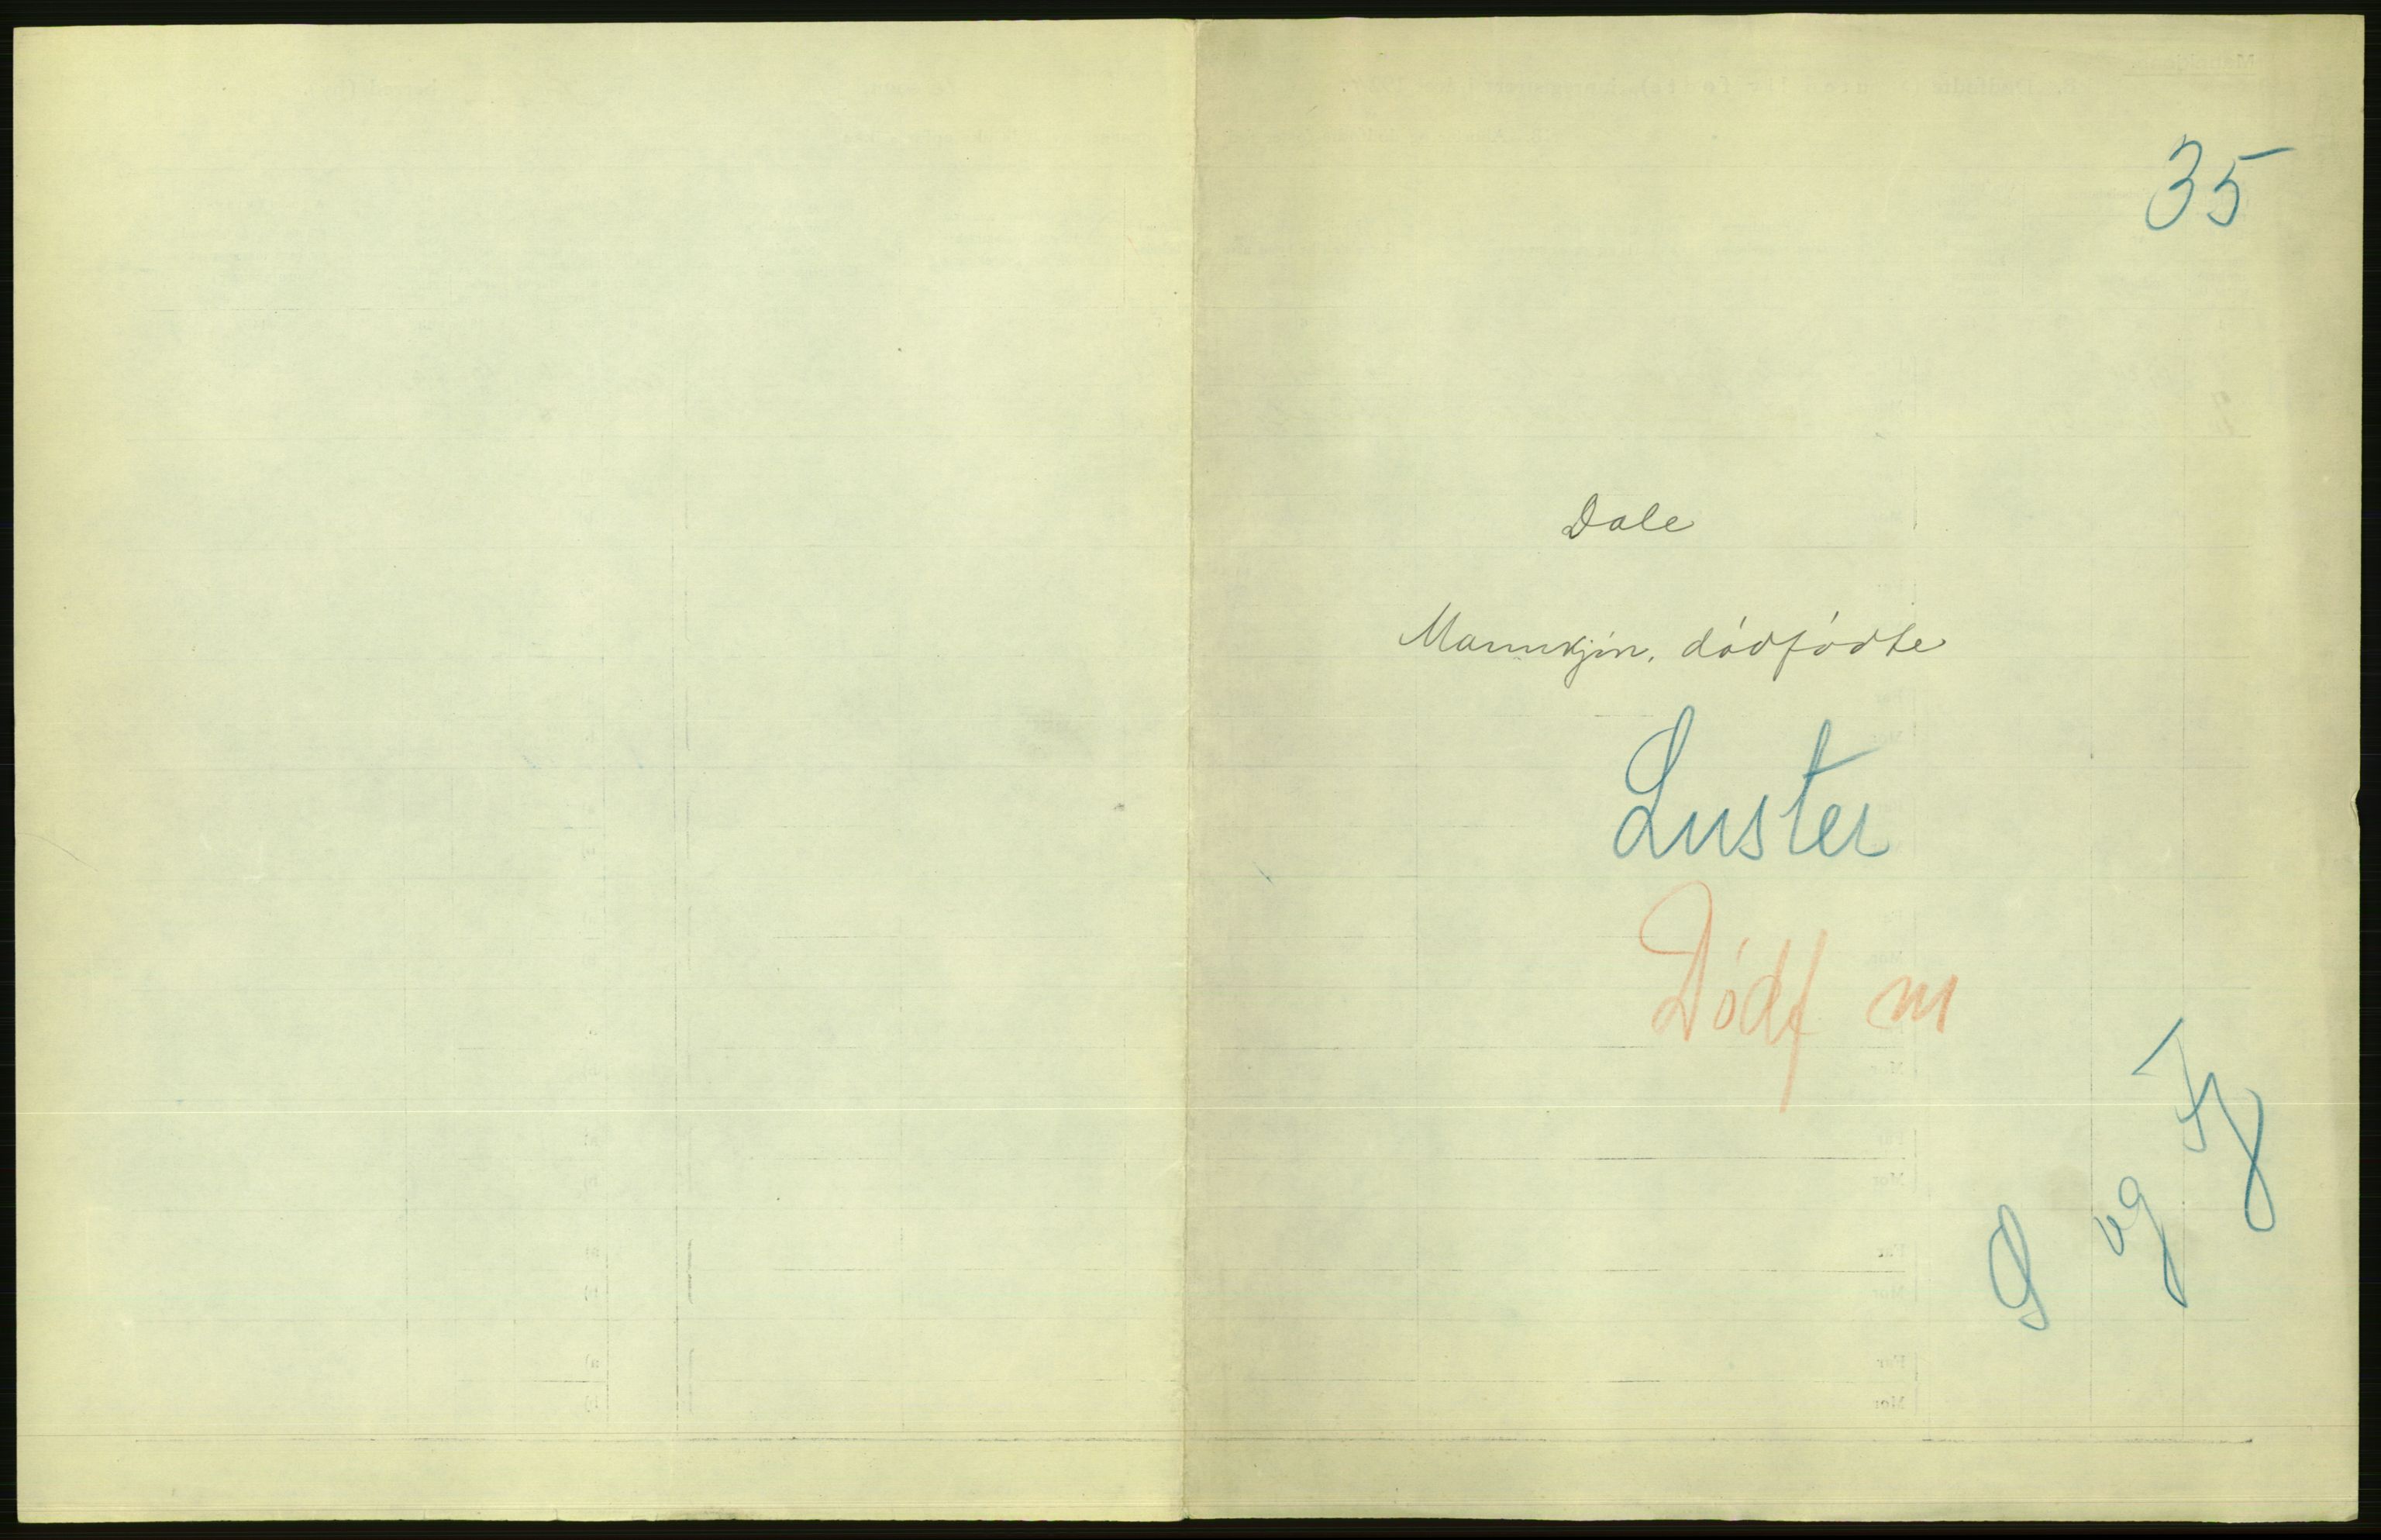 35
Dale
Mannkjön. dödfödte
Luster
Dödf m
S og Fj